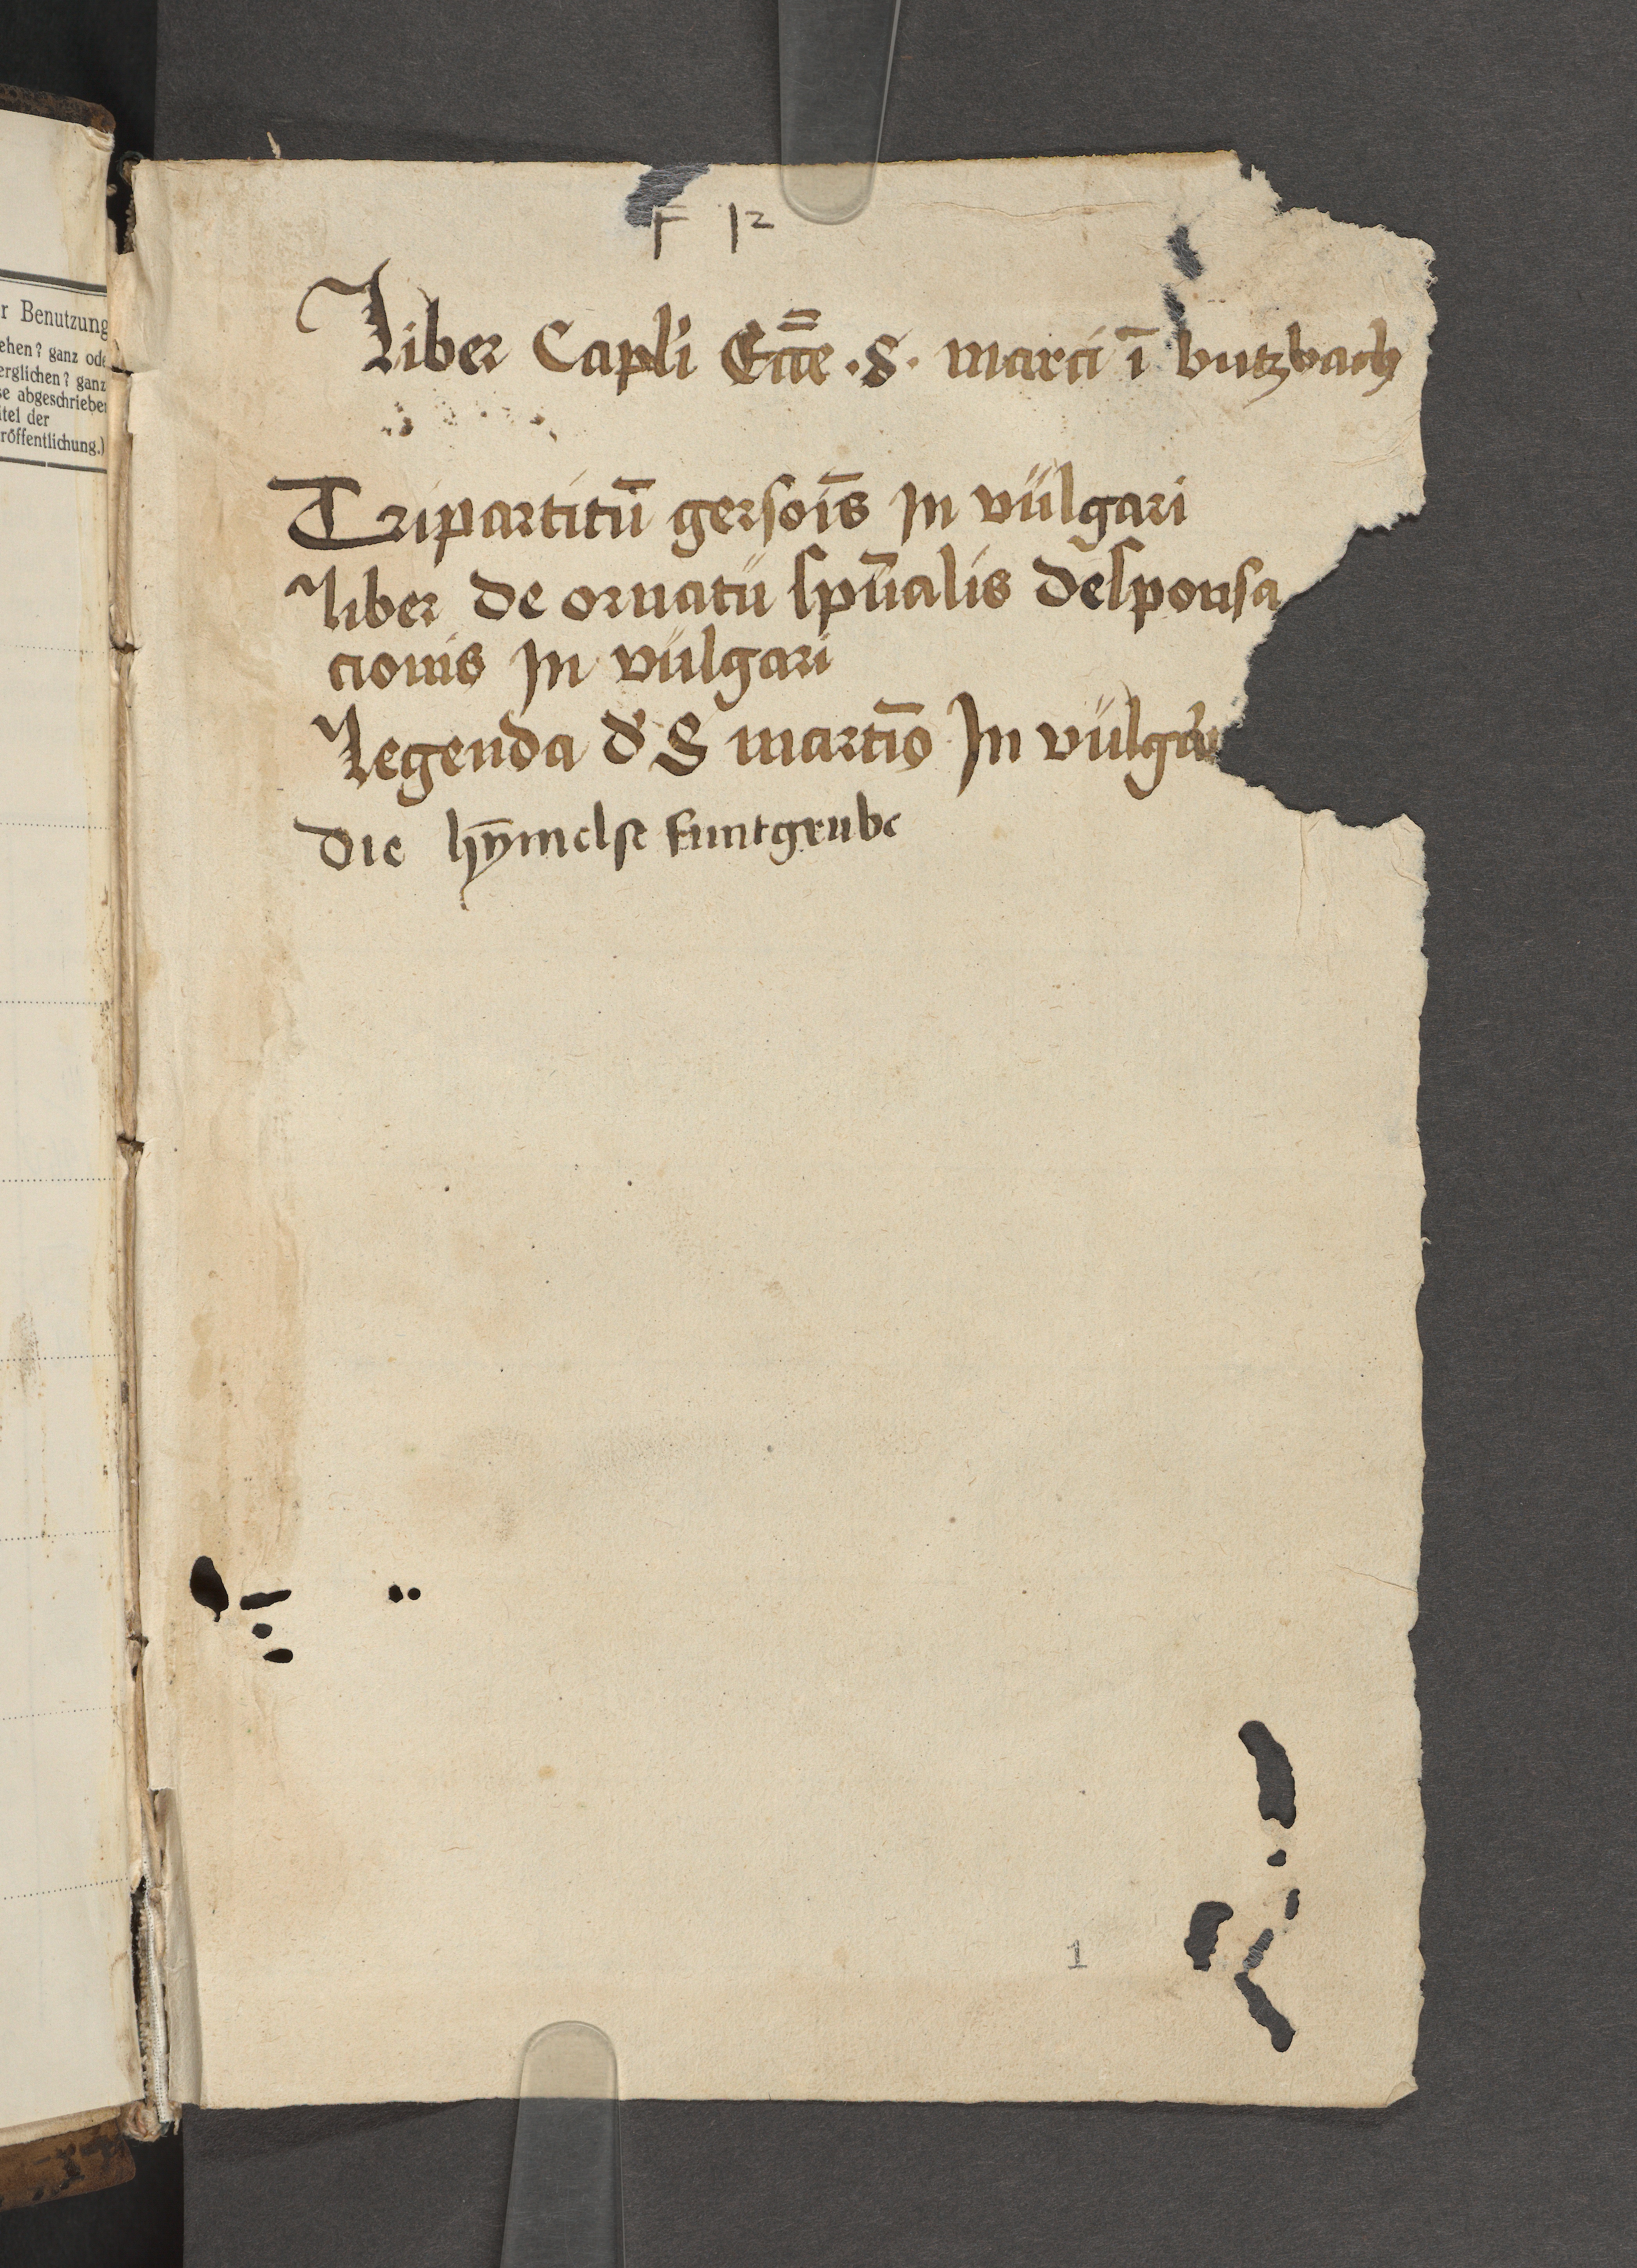 r Benutzung
ehen? ganz ode
erglichen? ganz
se abgeschrieben
itel der
röffentlichung.)
F 12
Liber Capl'i Ecc̄e · S · marci ī butzbach
Tripartitū gersoīs In vŭlgari
Liber de ornatŭ spūalis desponsa
cionis In vŭlgari
Legenda d' S martīo In vŭlgari
Die hȳmelse funtgrube
1